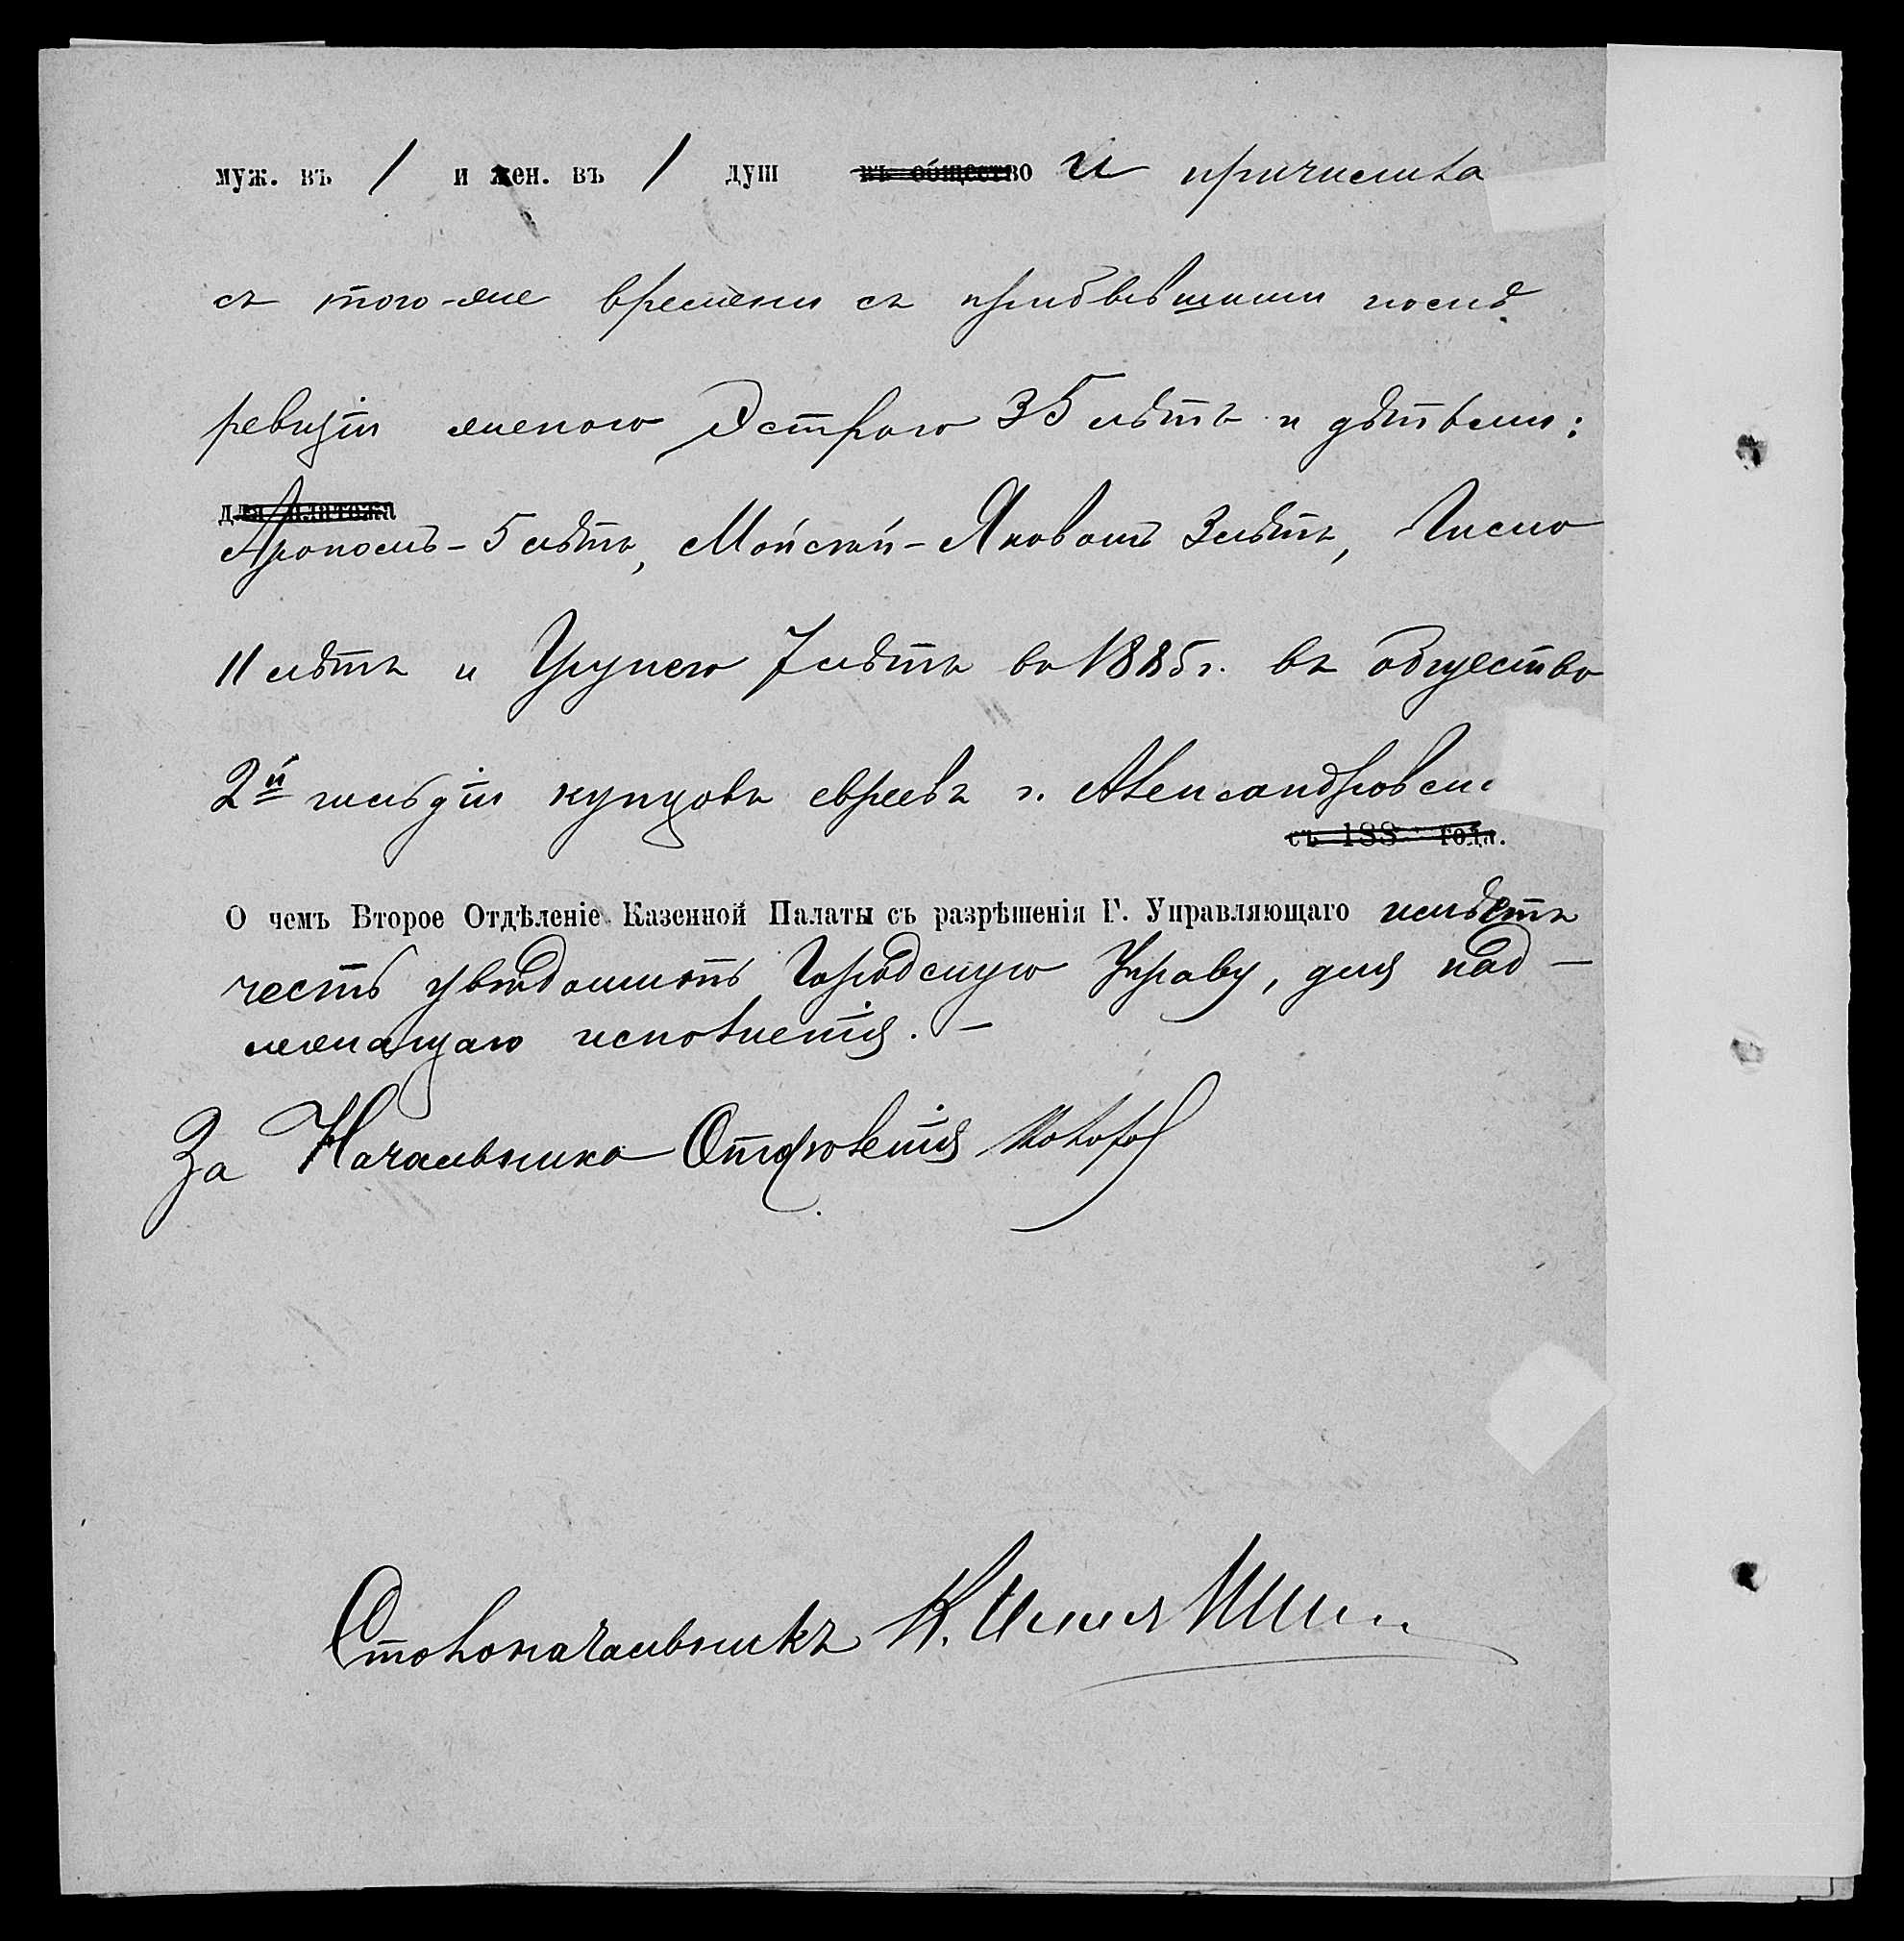 муж. въ 1 и жен. въ 1 душ въ общество и причислила
съ того-же времени съ прибывшими послѣ
ревизіи женою Эстрою 35 лѣтъ и дѣтьми:
для платежа
Арономъ - 5 лѣтъ, Мойсей - Яковомъ 3 лѣтъ,
11 лѣтъ и 7 лѣтъ въ 1885 г. въ общество
2й гильдіи купцовъ евреевъ г. Александровска
съ 188 года.
О чемъ Второе Отдѣленіе Казенной Палаты съ разрѣшенія Г. Управляющаго имѣетъ
честь увѣдомить Городскую Управу, для над-
лежащаго исполненія. —
За Начальника Отдѣленія
Столоначальникъ К.